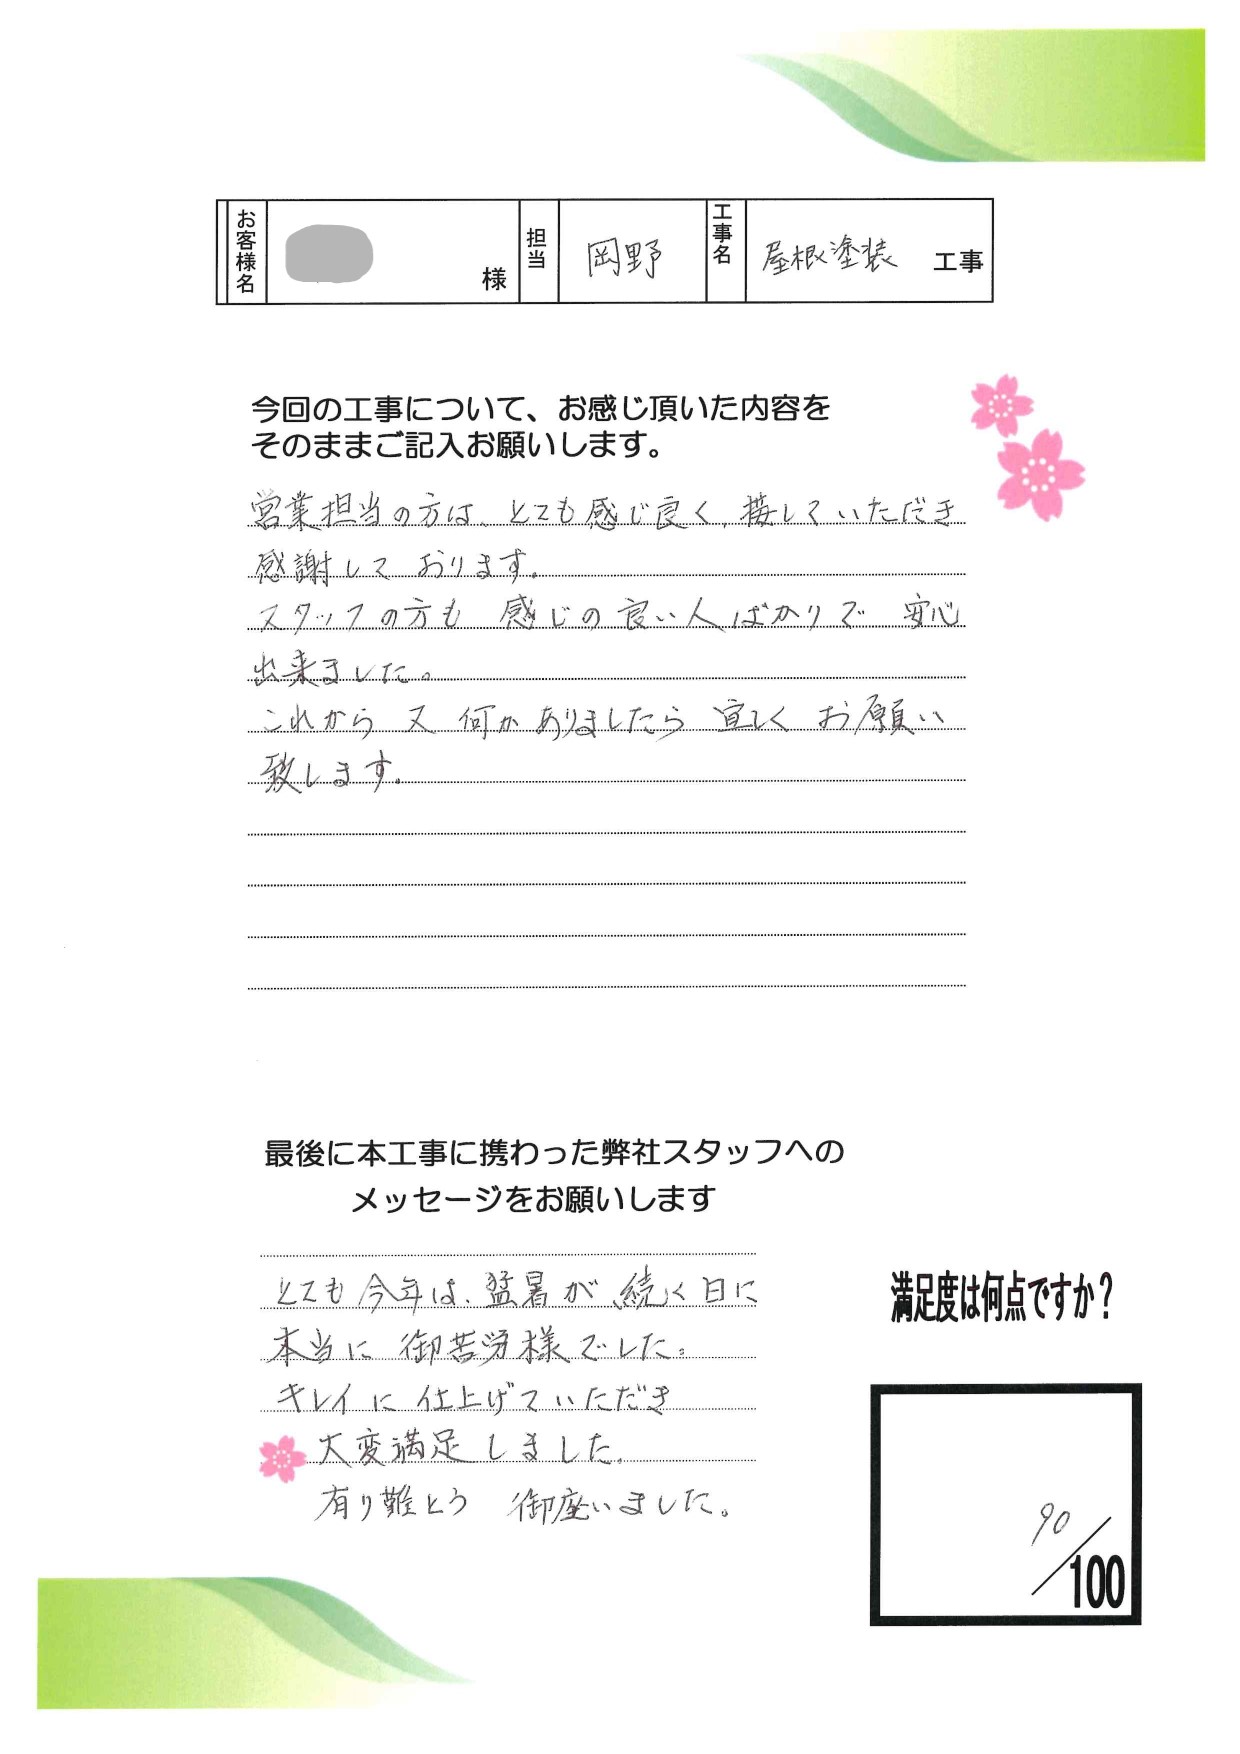 お客様名 様 担当 岡野 工事名 屋根塗装 工事
今回の工事について、お感じ頂いた内容を
そのままご記入お願いします。
営業担当の方は、とても感じ良く、接していただき
感謝して おります。
スタッフの方も 感じの良い人ばかりで 安心
出来ました。
これから 又 何か ありましたら 宜しく お願い
致します。
最後に本工事に携わった弊社スタッフへの
メッセージをお願いします
とても今年は、猛暑が続く日に
本当に 御苦労様でした。
キレイに 仕上げていただき
大変満足しました。
有り難とう 御座いました。
満足度は何点ですか？
90/100